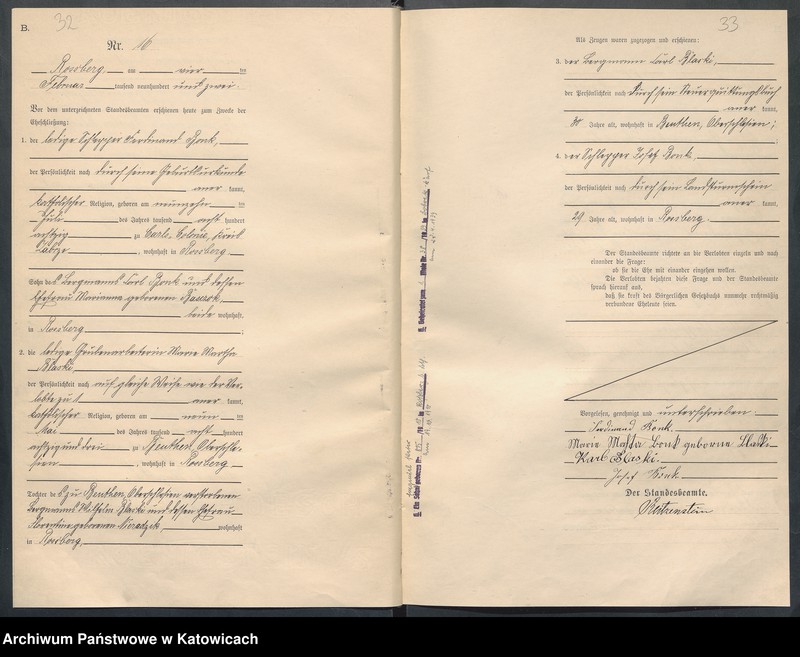 B.
32
Nr. 16
Rossberg am vier ten
Februar tausend neunhundert und zwei.
Vor dem unterzeichneten Standesbeamten erschienen heute zum Zwecke der
Eheschließung:
1. der ledige Schlepper Ferdinand Bonk,
der Persönlichkeit nach durch seine Geburtsurkunde
aner kannt,
katholischer Religion, geboren am neunzehn ten
Juli des Jahres tausend acht hundert
achtzig zu Carls-Colonie, Kreis
Zabrze, wohnhaft in Rossberg.
Sohn des Bergmanns Carl Bonk und dessen
Ehefrau Marianna geborenen
beide wohnhaft
in Rossberg;
2. die ledige Grubenarbeiterin Marie Martha
Blaski,
der Persönlichkeit nach auf gleiche Weise wie der Ver-
lobte zu 1 aner kannt,
katholischer Religion, geboren am neun ten
Mai des Jahres tausend acht hundert
achtzig und drei zu Beuthen, Oberschle-
sien, wohnhaft in Rossberg
Tochter des zu Beuthen, Oberschlesien verstorbenen
Bergmanns Wilhelm Blaski und dessen Ehefrau
Florentine geborenen wohnhaft
in Rossberg.
33
Als Zeugen waren zugezogen und erschienen:
3. der Bergmann Carl Blaski,
der Persönlichkeit nach durch sein Steuerquittungsbuch
aner kannt,
Jahre alt, wohnhaft in Beuthen, Oberschlesien;
4. der Schlepper Josef Bonk,
der Persönlichkeit nach durch sein Landsturmschein
aner kannt,
29 Jahre alt, wohnhaft in Rossberg.
Der Standesbeamte richtete an die Verlobten einzeln und nach
einander die Frage:
ob sie die Ehe mit einander eingehen wollen.
Die Verlobten bejahten diese Frage und der Standesbeamte
sprach hierauf aus,
daß sie kraft des Bürgerlichen Gesetzbuchs nunmehr rechtmäßig
verbundene Eheleute seien.
Vorgelesen, genehmigt und unterschrieben.
Ferdinand Bonk.
Marie Martha Bonk geborene Blaski
Karl Blaski.
Josef Bonk.
Der Standesbeamte.
Reitzenstein
Archiwum Państwowe w Katowicach